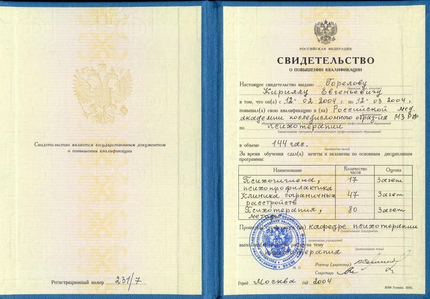 Свидетельство является государственным документом
о повышении квалификации
Регистрационный номер 231/7
РОССИЙСКАЯ ФЕДЕРАЦИЯ
СВИДЕТЕЛЬСТВО
О ПОВЫШЕНИИ КВАЛИФИКАЦИИ
Настоящее свидетельство выдано Горелову
Кириллу Евгеньевичу
в том, что он(а) с 12. 02 2004 г. по 12. 03 2004 г.
повышал(а) свою квалификацию в (на) Российской мед.
академии последипломного образ-ия МЗ РФ
по психотерапии
в объеме 144 час.
За время обучения сдал(а) зачеты и экзамены по основным дисциплинам
программы:
Наименование Количество часов Оценка
Психогигиена, психопрофилактика 17 Зачет
Клиника пограничных расстройств 47 Зачет
Психотерапия, 80 Зачет
кафедре психотерапии
Ректор
Секретарь
Город Москва 2004